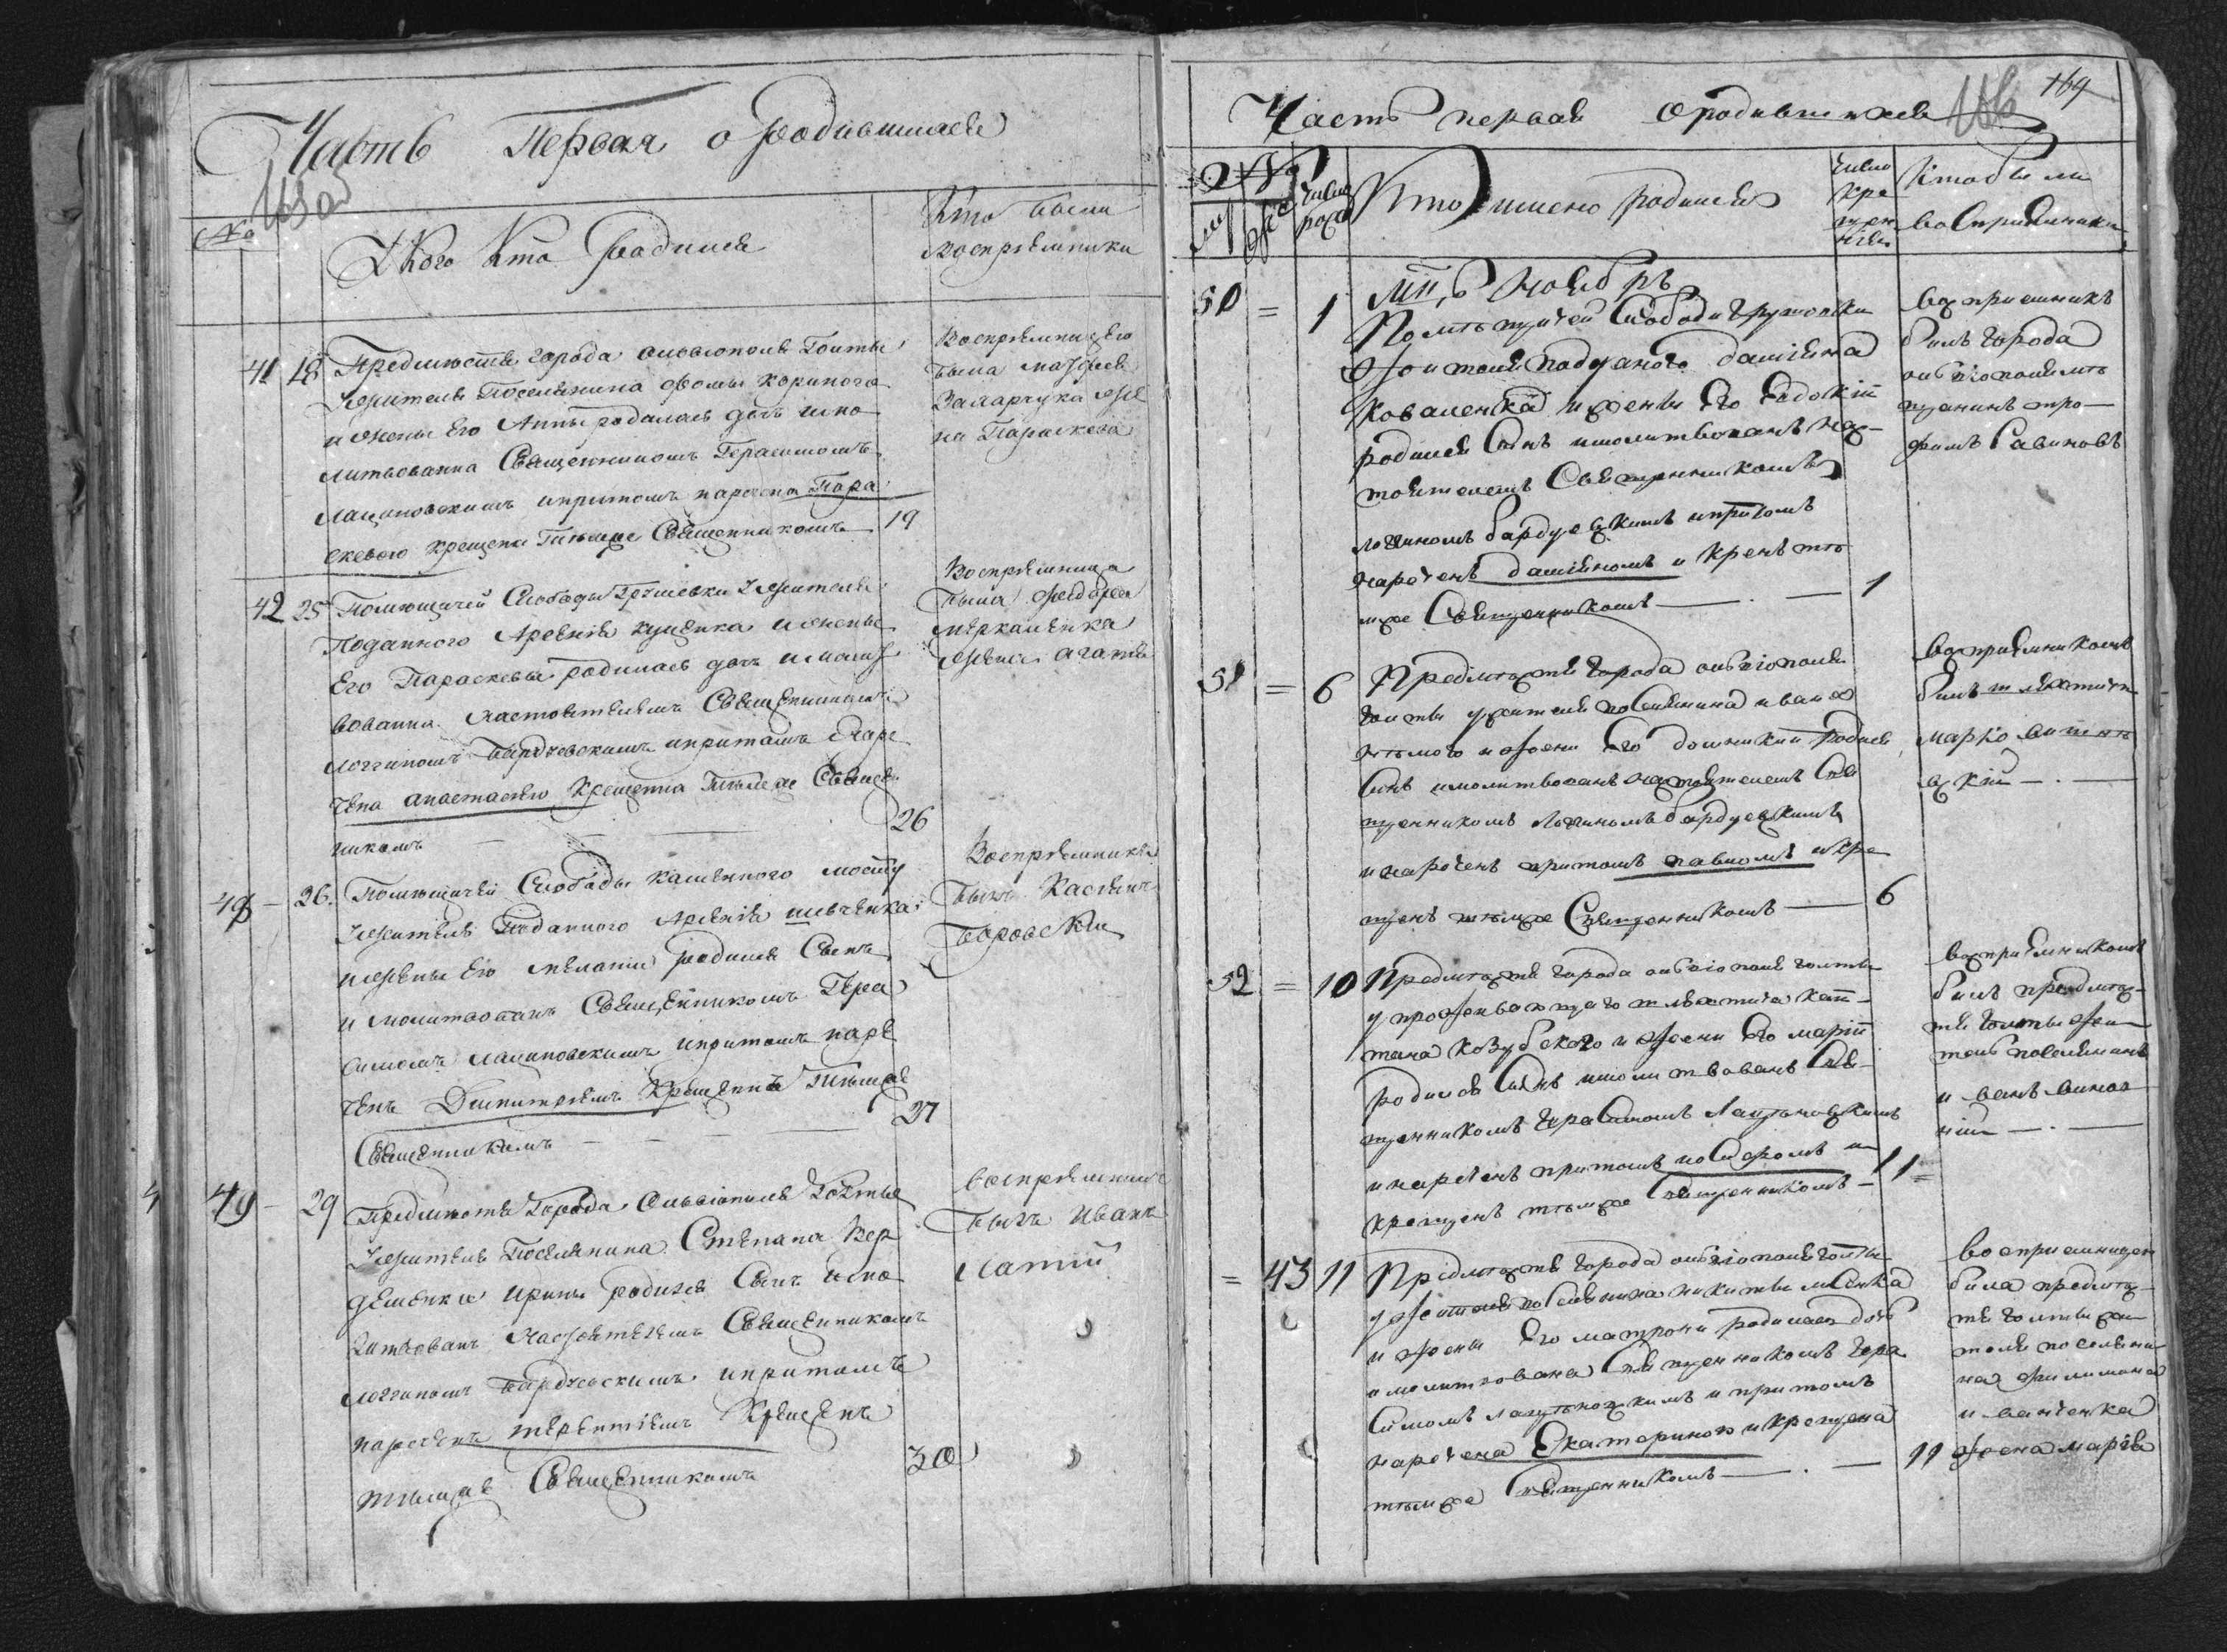 Часть Первая о родившихся
№
У Кого Кто Родился
Кто были
Воспріемники
41 18 Предместія города ольвіополя Голты
жителя Поселянина Фомы
и жены Его Анны родилась дочь имо
литвованна Священникомъ Герасимомъ
Лациновскимъ ипритомъ наречена Пара
скевою крещена Тимже Священникомъ 19
Воспріемницею
была
Захарчука же
на Параскева
42 25 Помещичей Слободы Грушевки жителя
Поданного Арсенія Куценка и жены
Его Параскевы родилась дочь и молит
вованна настоятелемъ Священникомъ
Логгиномъ Бардчевскимъ ипритомъ наре
чена анастасіею Крещенна Тимже Священ
никомъ 26
Воспріемница
была Феодора
жена агафія
48 - 26. Помещичей Слободы каменного мосту
жителя Поданного Арсенія шевченка
и жены Его меланіи родился Сынъ
и молитвованъ Священникомъ Гера
симомъ лациновскимъ ипритомъ наре
ченъ Димитріемъ Крещенъ Тимже
Священникомъ 27
Воспріемникъ
былъ Касіянъ
Боровскій
49 - 29 Предместя Города Ольвіополя Голты
жителя Поселянина Степана Вер
ирины родился Сынъ и мо
литвованъ настоятелемъ Священникомъ
логгиномъ Бардчевскимъ ипритомъ
нареченъ терентіемъ Крещенъ
тимже Священникомъ 30
воспріемникъ
былъ Иванъ
Латій
Часть первая о родившихся
169
№
число
рож
Кто имено родился
число
кре
щен
нія
Кто были
воспріемники
мц,ъ Ноябрь
50 = 1 Помѣщичей Слободи Грушовки
жителя подданого даміяна
Коваленка и жены Его Евдокіи
родился Синъ имолитвованъ нас-
тоятелемъ Священникомъ
логиномъ бардчевскимъ ипритомъ
нареченъ даміяномъ и крещенъ тѣ
мже Священникомъ 1
воспріемникъ
билъ города
ольвіополя мѣ
щанинъ тро-
фимъ Савиновъ
51 = 6 Предмѣстя города ольвіополя
Голты жителя поселянина ивана
и жени Его домникии родился
Синъ имолитвованъ настоятелемъ Свя
щенникомъ логиномъ бардчевскимъ
и нареченъ притомъ павломъ и кре
щенъ тѣмже Священникомъ 6
воспріемникомъ
билъ шляхтичъ
марко
скій
52 = 10 Предмѣстя города ольвіополя голты
у проживающаго шляхтича капи-
тана козубского и жени Его маріи
родился Синъ имолитвованъ Свя-
щенникомъ герасимомъ Лацѣновскимъ
и нареченъ притомъ исидоромъ и
крещенъ тѣмже Священникомъ 11
воспріемникомъ
билъ предмѣс-
тя голты жи-
тель поселянинъ
иванъ
43 11 Предмѣстя города ольвіополя голты
у жителя поселянина никиты
и жены Его матрони родилась дочь
имолитвована Священникомъ гера
симомъ лацѣновскимъ и притомъ
наречена Екатериною и крещена
тѣмже Священникомъ 11
воспріемницею
била предмѣс-
тя голты жи
теля поселяни
на филимона
иванченка
жена марія